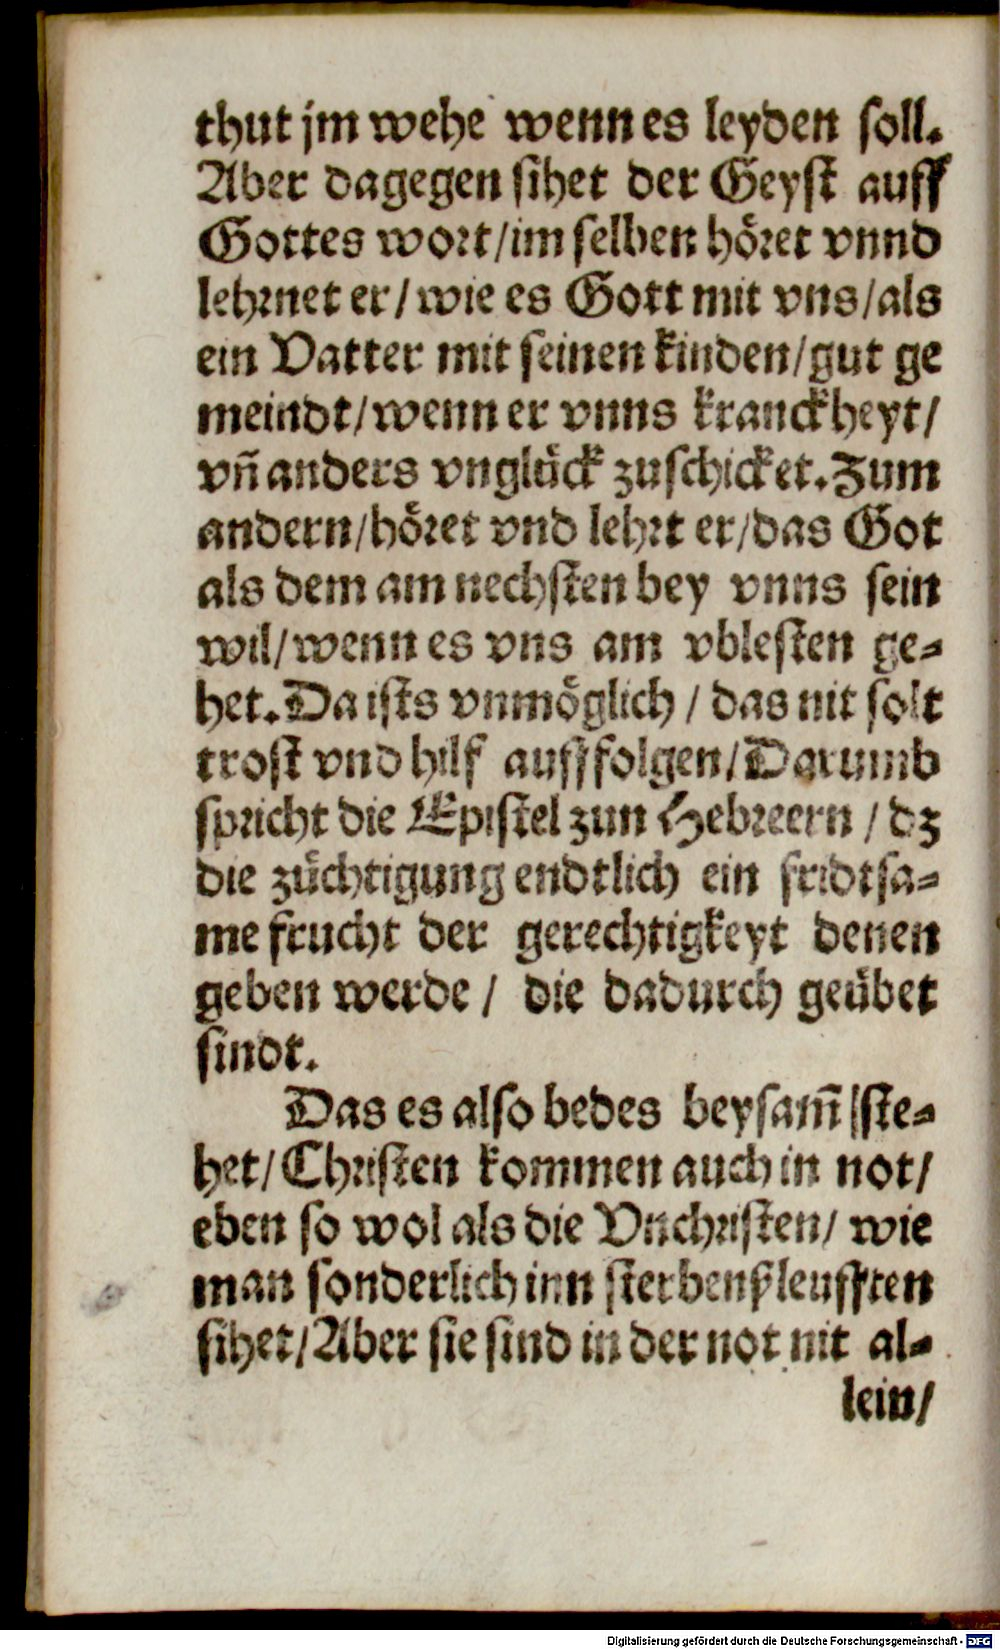 thut jm wehe wenn es leyden soll.
Aber dagegen sihet der Geyst auff
Gottes wort/im selben höret vnnd
lehrnet er/wie es Gott mit vns/als
ein Vatter mit seinen kinden/gut ge
meindt/wenn er vnns kranckheyt/
vñ anders vnglück zuschicket. Zum
andern/höret vnd lehrt er/das Got
als dem am nechsten bey vnns sein
wil/wenn es vns am vblesten ge-
het. Da ists vnmöglich/das nit solt
trost vnd hilf auff folgen/Darumb
spricht die Epistel zun Hebreern/dz
die züchtigung endtlich ein fridtsa-
me frucht der gerechtigkeyt denen
geben werde/die dadurch geübet
sindt.
Das es also bedes beysam̄ ste-
het/Christen kommen auch in not/
eben so wol als die Vnchristen/wie
man sonderlich inn sterbenßleufften
sihet/Aber sie sind in der not nit al-
lein/
Digitalisierung gefördert durch die Deutsche Forschungsgemeinschaft - DFG